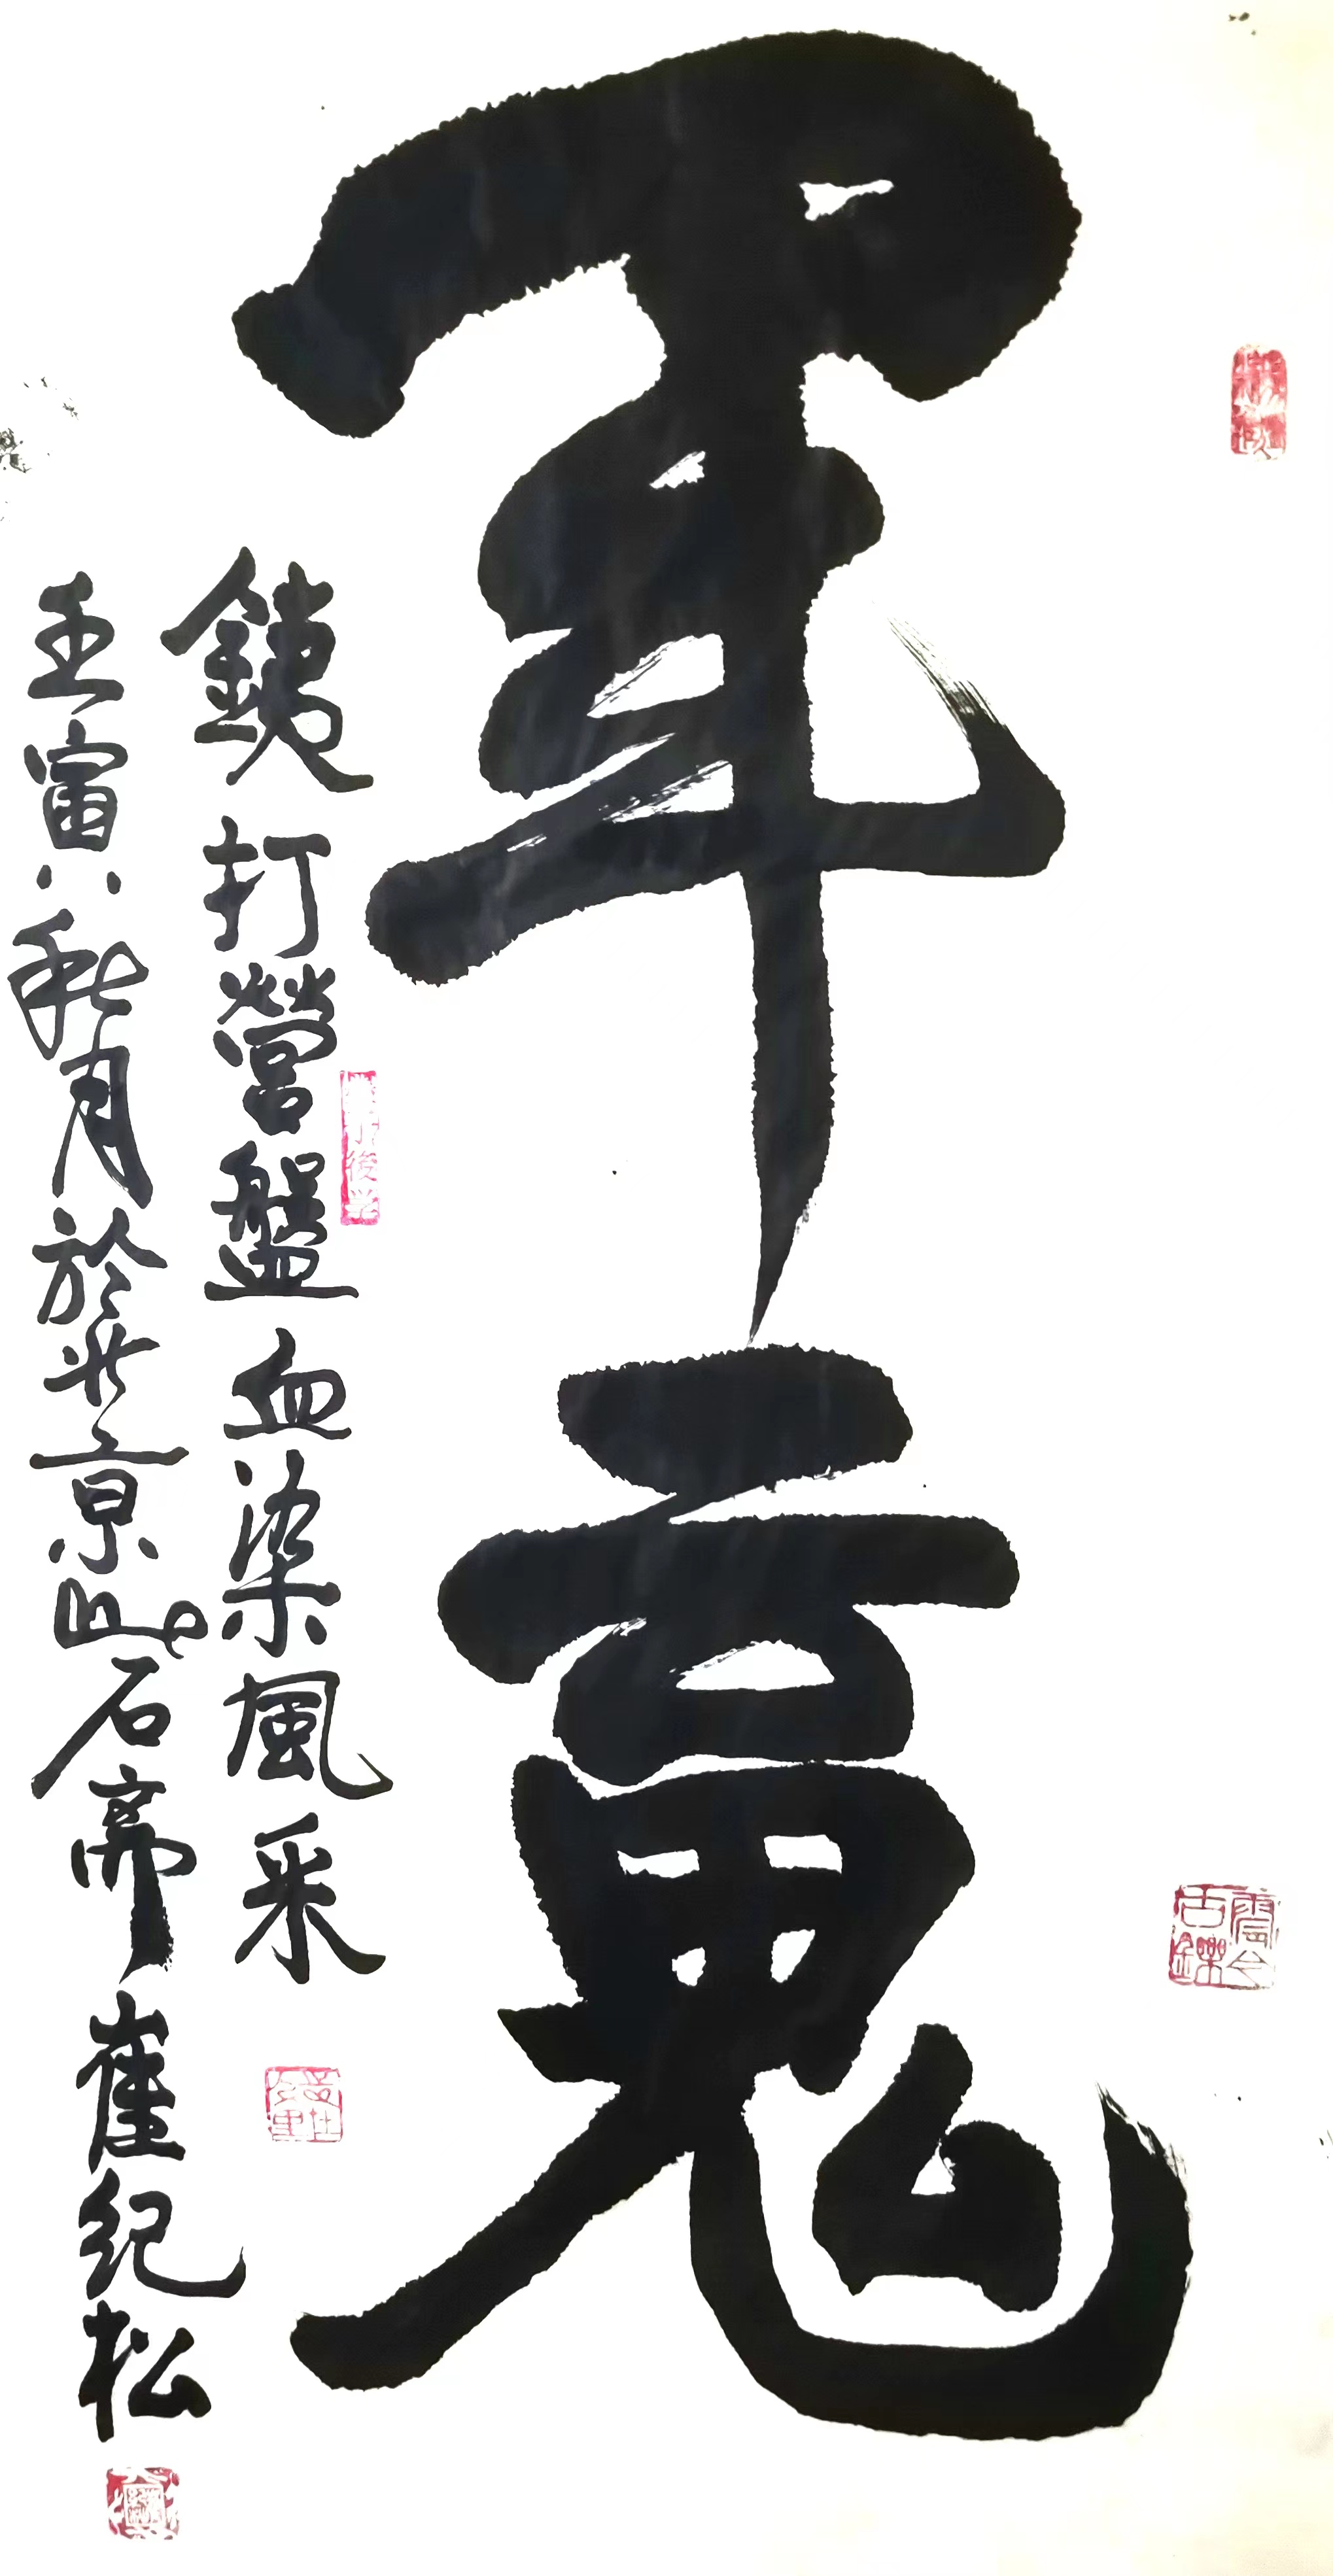 軍魂
鐵打營盤血染風采
壬寅秋月於北京山石齋崔纪松